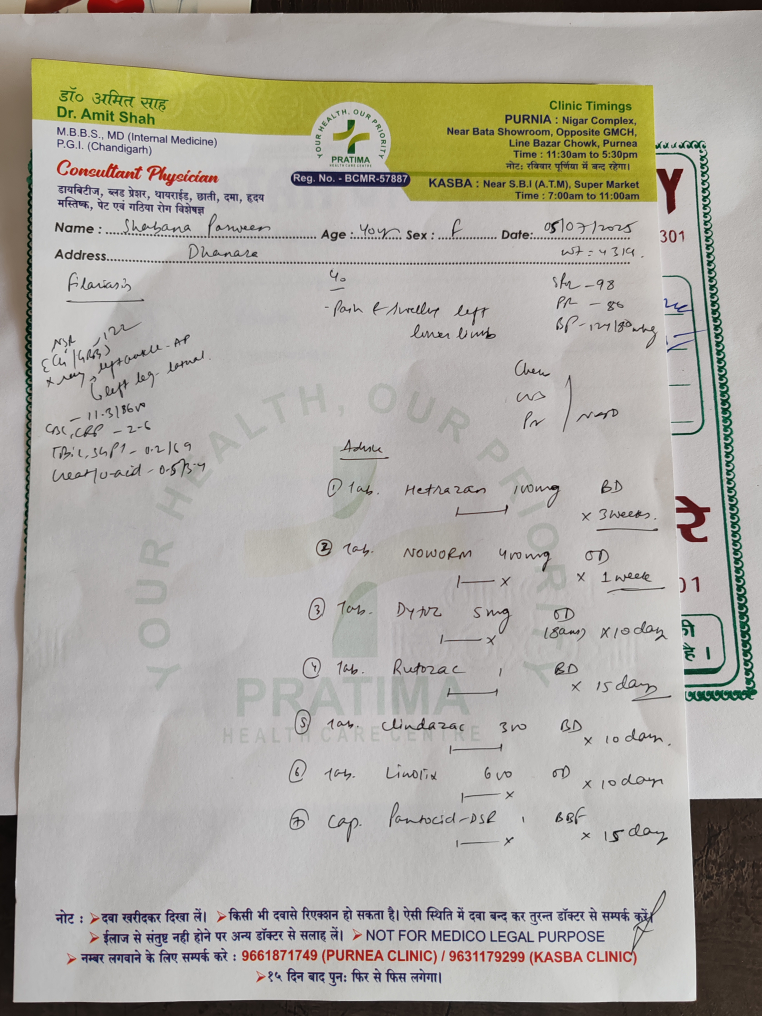 डॉ० अमित साह
Dr. Amit Shah
M.B.B.S., MD (Internal Medicine)
P.G.I. (Chandigarh)
Consultant Physician
डायबिटीज, ब्लड प्रेशर, थायराईड, छाती, दमा, हृदय
मस्तिष्क, पेट एवं गठिया रोग विशेषज्ञ
YOUR HEALTH, OUR PRIORITY
PRATIMA
HEALTH CARE CENTRE
Reg. No. - BCMR-57887
Clinic Timings
PURNIA : Nigar Complex,
Near Bata Showroom, Opposite GMCH,
Line Bazar Chowk, Purnea
Time : 11:30am to 5:30pm
नोट: रविवार पूर्णिया में बन्द रहेगा।
KASBA : Near S.B.I (A.T.M), Super Market
Time : 7:00am to 11:00am
Name : Shabana Parween Age : 40yr Sex : F Date: 05/07/2025
Address Dhanara wt = 43.9
Filariasis
40
- Pain & swelling left
lower limb
SPO2 - 98
PR - 86
BP - 124/80 mmHg
Chest
CVS
P/A
NAD
X ray left ankle - AP
left leg - lateral
CBC, CRP - 2.6
T.Bil, SGPT - 0.2/69
Advice
① Tab. Hetrazan 100mg BD
× 3 weeks.
② Tab. NOWORM 400mg OD
× 1 week
③ Tab. Dytor 5mg OD
(8am) × 10 day
④ Tab. Rutozac 1 BD
× 15 day
⑤ Tab. Clindazac 300 BD
× 10 day.
⑥ Tab. Linotix 600 OD
× 10 day
⑦ Cap. Pantocid-DSR 1 BBF
× 15 day
YOUR HEALTH, OUR PRIORITY
PRATIMA
HEALTH CARE CENTRE
नोट : ➤ दवा खरीदकर दिखा लें। ➤ किसी भी दवासे रिएक्शन हो सकता है। ऐसी स्थिति में दवा बन्द कर तुरन्त डॉक्टर से सम्पर्क करें।
➤ ईलाज से संतुष्ट नही होने पर अन्य डॉक्टर से सलाह लें। ➤ NOT FOR MEDICO LEGAL PURPOSE
➤ नम्बर लगवाने के लिए सम्पर्क करे : 9661871749 (PURNEA CLINIC) / 9631179299 (KASBA CLINIC)
➤ १५ दिन बाद पुनः फिर से फिस लगेगा।
Y
301
रे
01
की
है।